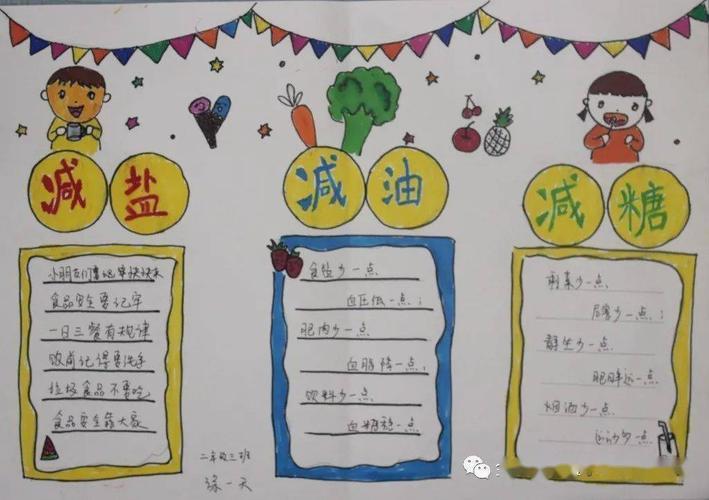 减盐
减油
减糖
食品安全要记牢
一日三餐有规律
饭前记得要洗手
垃圾食品不要吃
食品安全靠大家
食盐少一点
血压低一点；
肥肉少一点
血脂降一点；
饮料少一点
血糖稳一点
剩菜少一点
危害少一点；
零食少一点
肥胖远一点
烟酒少一点
运动多一点
二年级三班
一天